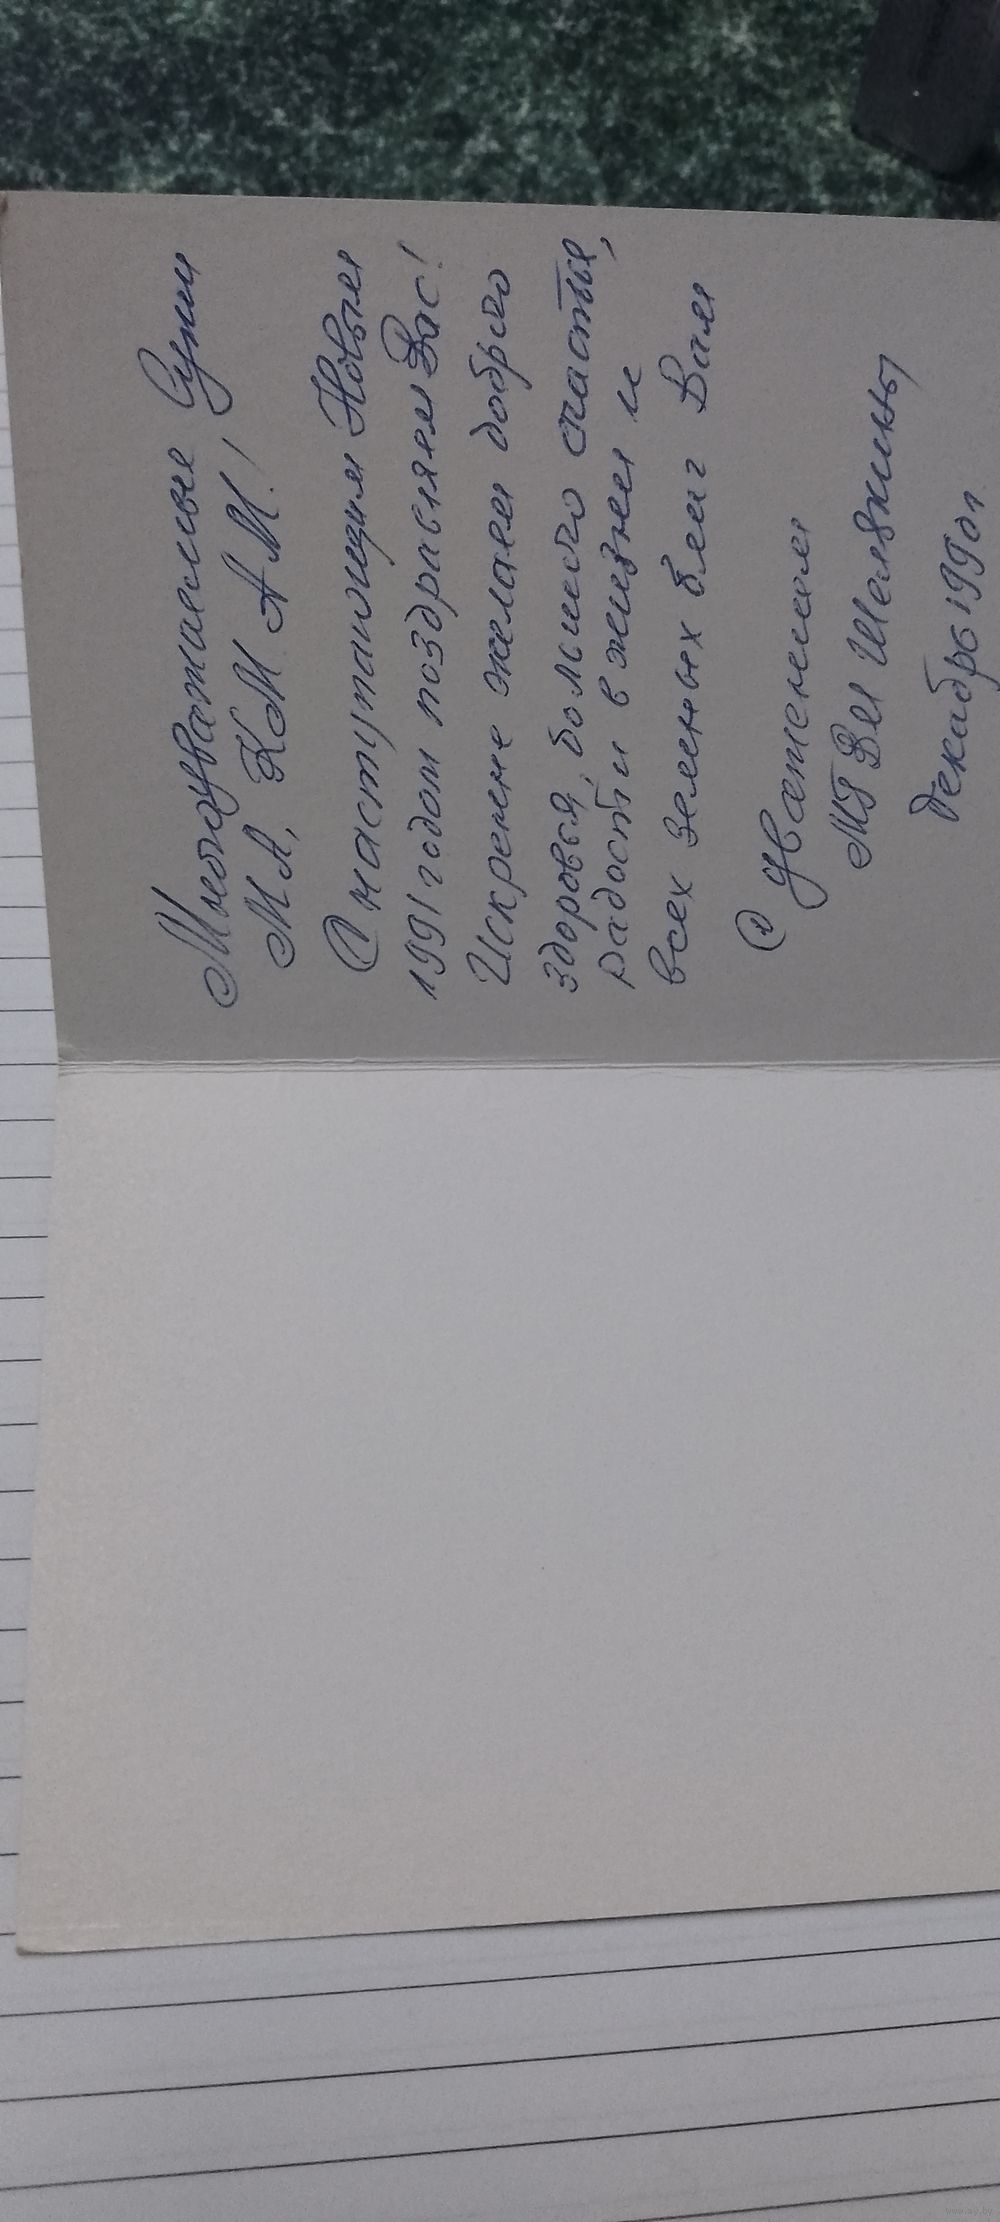 Многоуважаемые
МА, КМ АМ!
С наступающим Новым
1991 годом поздравляем Вас!
Искренне желаем доброго
здоровья, большого счастья,
радости в жизни и
всех земных благ Вам
С уважением
МГ ВМ
Декабрь 1990г.
www.ay.by